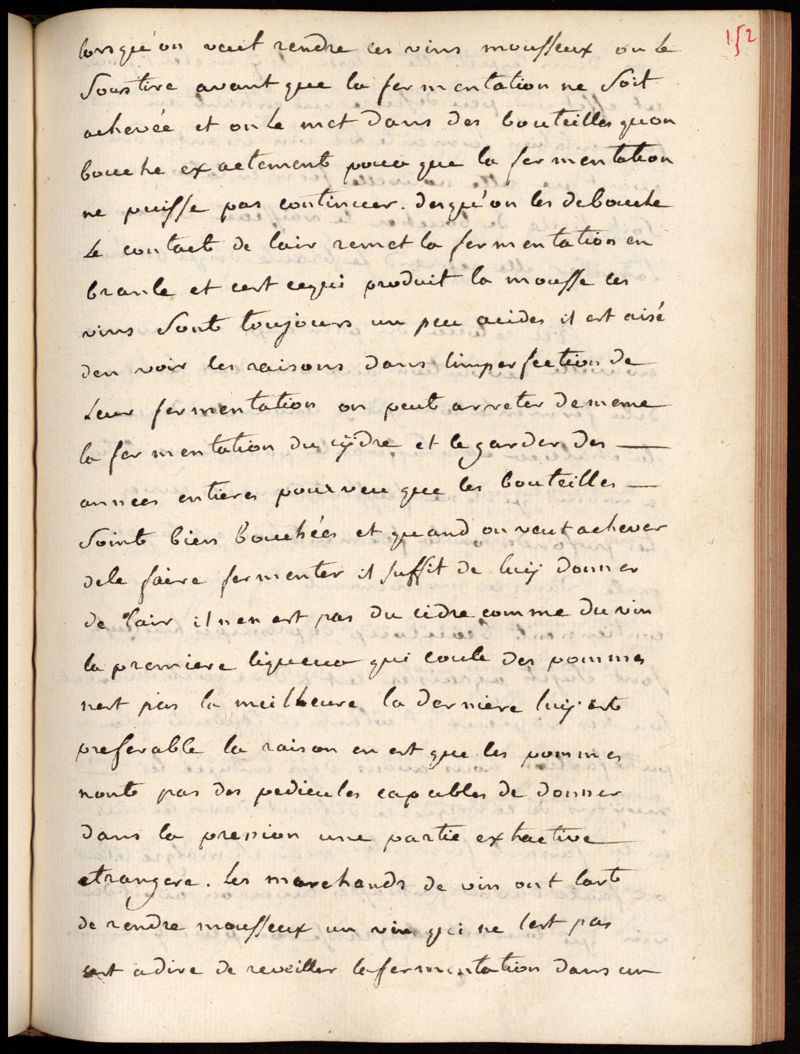 152
lorsqu'on veut rendre ces vins mousseux on le
soustire avant que la fermentation ne soit
achevée et on le met dans des bouteilles quon
bouche exactement pour que la fermentation
ne puisse pas continuer. desqu'on les debouche
le contact de lair remet la fermentation en
branle et cest cequi produit la mousse ces
vins sont toujours un peu acides il est aisé
den voir les raisons dans limperfection de
leur fermentation on peut arreter de meme
la fermentation du cÿdre et le garder des —
années entieres pourveu que les bouteilles —
soint bien bouchées et quand on veut achever
dele faire fermenter il suffit de luÿ donner
de lair il nen est pas du cidre comme du vin
la premiere liqueur qui coule des pommes
nest pas la meilheure la derniere luÿ est
preferable la raison en est que les pommes
nont pas des pedicules capables de donner
dans la pression une partie extractive
etrangere. les marchands de vin ont lart
de rendre mousseux un vin qui ne lest pas
cest adire de reveiller la fermentation dans un